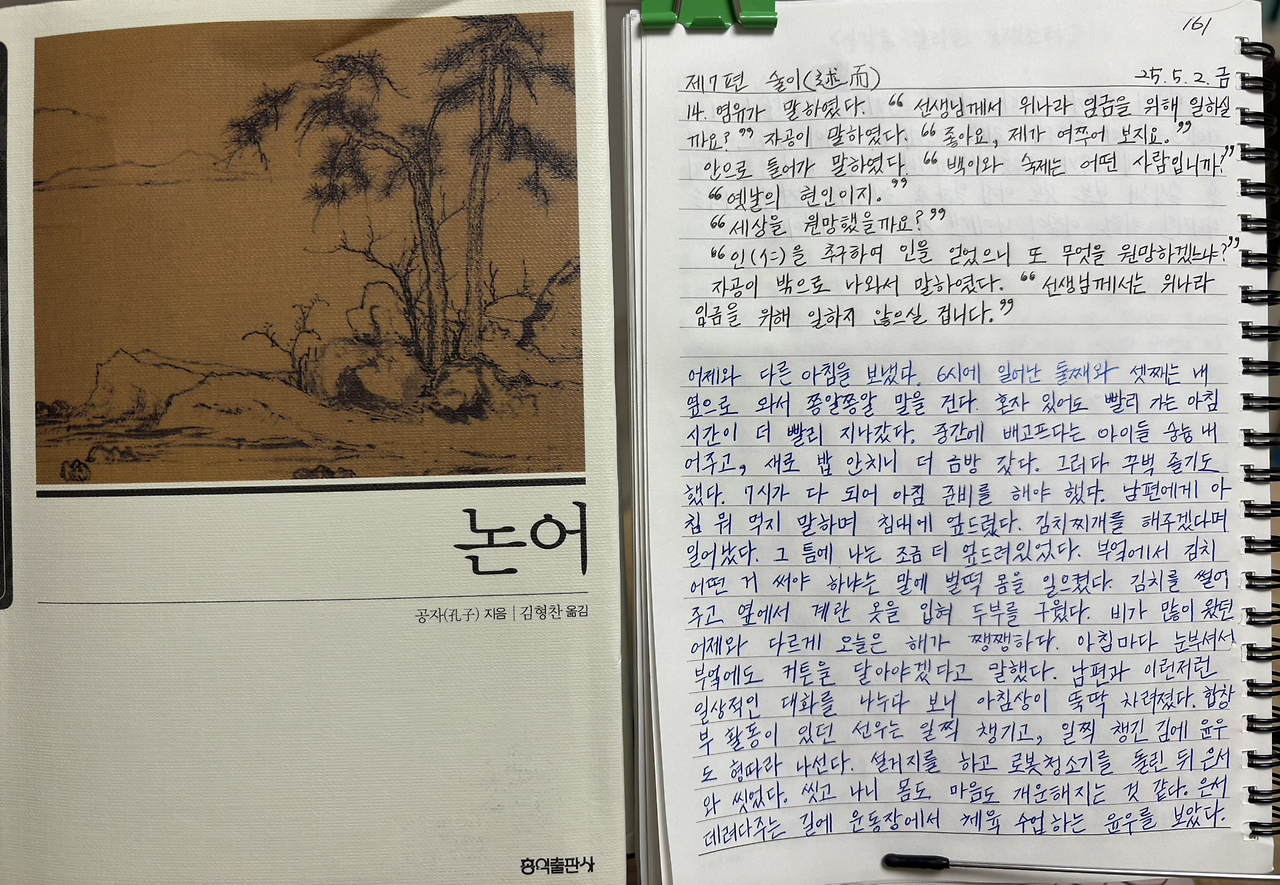 논어
공자(孔子) 지음 | 김형찬 옮김
홍익출판사
161
제7편 술이(述而) 25.5.2.금
14. 염유가 말하였다. “선생님께서 위나라 임금을 위해 일하실
까요?” 자공이 말하였다. “좋아요, 제가 여쭈어 보지요.”
안으로 들어가 말하였다. “백이와 숙제는 어떤 사람입니까?”
“옛날의 현인이지.”
“세상을 원망했을까요?”
“인(仁)을 추구하여 인을 얻었으니 또 무엇을 원망하겠느냐?”
자공이 밖으로 나와서 말하였다. “선생님께서는 위나라
임금을 위해 일하지 않으실 겁니다.”
어제와 다른 아침을 보냈다. 6시에 일어난 둘째와 셋째는 내
옆으로 와서 쫑알쫑알 말을 건다. 혼자 있어도 빨리 가는 아침
시간이 더 빨리 지나갔다. 중간에 배고프다는 아이들 숭늉 내
어주고, 새로 밥 안치니 더 금방 갔다. 그러다 꾸벅 졸기도
했다. 7시가 다 되어 아침 준비를 해야 했다. 남편에게 아
침 뭐 먹지 말하며 침대에 엎드렸다. 김치찌개를 해주겠다며
일어났다. 그 틈에 나는 조금 더 엎드려있었다. 부엌에서 김치
어떤 거 써야 하냐는 말에 벌떡 몸을 일으켰다. 김치를 썰어
주고 옆에서 계란 옷을 입혀 두부를 구웠다. 비가 많이 왔던
어제와 다르게 오늘은 해가 쨍쨍하다. 아침마다 눈부셔서
부엌에도 커튼을 달아야겠다고 말했다. 남편과 이런저런
일상적인 대화를 나누다 보니 아침상이 뚝딱 차려졌다. 합창
부 활동이 있던 선우는 일찍 챙기고, 일찍 챙긴 김에 윤우
도 형따라 나선다. 설거지를 하고 로봇청소기를 돌린 뒤 은서
와 씻었다. 씻고 나니 몸도 마음도 개운해지는 것 같다. 은서
데려다주는 길에 운동장에서 체육 수업하는 윤우를 보았다.